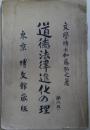 文學博士加藤弘之著
道德法律進化の理
東京 博文館藏版